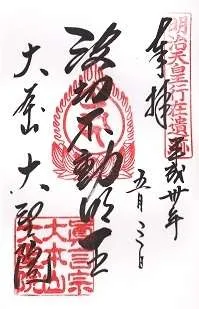 明治天皇行在遺跡
奉拝
平成卅年
五月三日
波切不動明王
大本山 大聖院
真言宗
大本山
大聖院